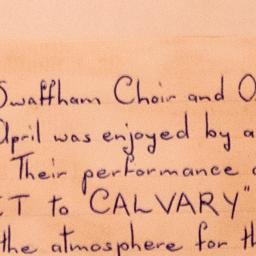 Swaffham Choir and O
April was enjoyed by a
Their performance
ET to "CALVARY"
the atmosphere for th